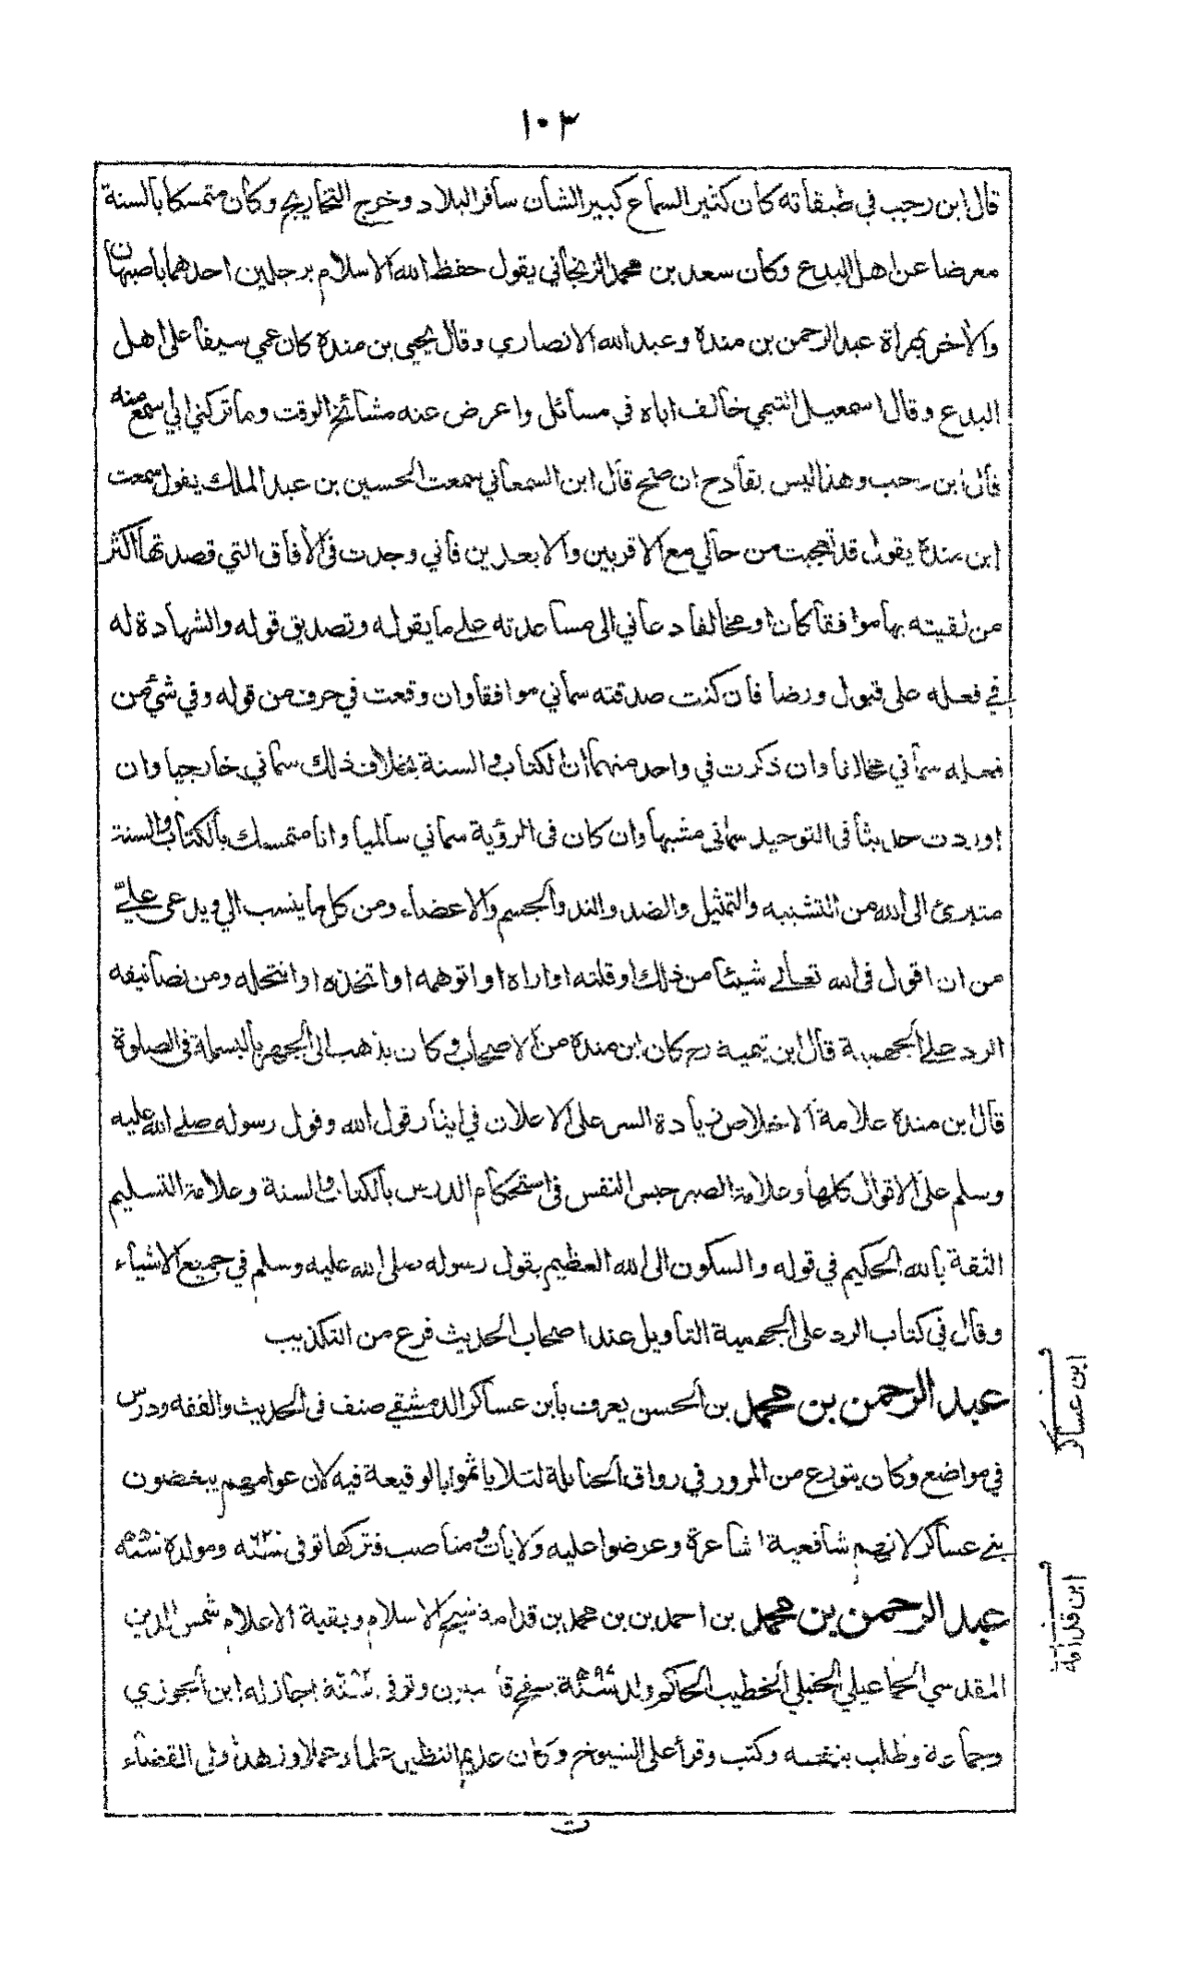 ١٠٣
قال ابن رجب في طبقاته كان كثير السماع كبير الشان سافر البلاد وخرج التخاريج وكان متمسكا بالسنة
معرضا عن اهل البدع وكان سعد بن محمد الزنجاني يقول حفظ الله الاسلام برجلين احدهما باصبهان
والاخر بهراة عبد الرحمن بن مندة وعبد الله الانصاري وقال يحيى بن مندة كان عمي سيفا على اهل
البدع وقال اسمعيل التيمي خالف اباه في مسائل واعرض عنه مشائخ الوقت وما تركني ابي سمع منه
قال ابن رجب وهذا ليس بقادح ان صح قال ابن السمعاني سمعت الحسين بن عبد الملك يقول سمعت
ابن مندة يقول قد عجبت من حالي مع الاقربين والابعدين فاني وجدت في الأفاق التي قصدتها اكثر
من لقيته بها موافقا كان او مخالفا دعاني الى مساعدته على ما يقوله وتصديق قوله والشهادة له
في فعله على قبول ورضا فان كنت صدقته سماني موافقا وان وقعت في حرف من قوله وفي شئ من
فعله سماني مخالفا وان ذكرت في واحد منهما ان الكتاب والسنة بخلاف ذلك سماني خارجيا وان
اوردت حديثا في التوحيد سماني مشبها وان كان في الرؤية سماني سالميا وانا متمسك بالكتاب والسنة
متبرئ الى الله من التشبيه والتمثيل والضد والند والجسم والاعضاء ومن كل ما ينسب الي ويدعى عليّ
من ان اقول في الله تعالى شيئا من ذلك او قلته او اراه او اتوهمه او اتخذه او انتحله ومن تصانيفه
الرد على الجهمية قال ابن تيمية رح كان ابن مندة من الاصحاب وكان يذهب الى الجهر بالبسملة في الصلوة
قال ابن مندة علامة الاخلاص زيادة السر على الاعلان في ايثار قول الله وقول رسوله صلى الله عليه
وسلم على الاقوال كلها وعلامة الصبر حبس النفس في استحكام الدرس بالكتاب والسنة وعلامة التسليم
الثقة بالله الحكيم في قوله والسكون الى الله العظيم بقول رسوله صلى الله عليه وسلم في جميع الاشياء
وقال في كتاب الرد على الجهمية التاويل عند اصحاب الحديث فرع من التكذيب
عبد الرحمن بن محمد بن الحسن يعرف بابن عساكر الدمشقي صنف في الحديث والفقه ودرس
ابن عساكر
في مواضع وكان يتورع من المرور في رواق الحنابلة لئلا ياثموا بالوقيعة فيه لان عوامهم يبغضون
بني عساكر لانهم شافعية اشاعرة وعرضوا عليه ولايات ومناصب فتركها توفى سنة ٦٢٠ ومولده سنة ٥٥٠
عبد الرحمن بن محمد بن احمد بن بن محمد بن قدامة شيخ الاسلام وبقية الاعلام شمس الدين
ابن قدامة
المقدسي الجماعيلي الحنبلي الخطيب الحاكم ولد سنة ٥٩٧ بسفح قاسيون وتوفى اجاز له ابن الجوزي
وجماعة وطلب بنفسه وكتب وقرأ على الشيوخ وكان عديم النظير علما وعملا وزهدا ولى القضاء
ت